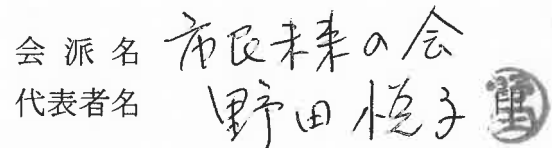 会派名 市民未来の会
代表者名 野田悦子